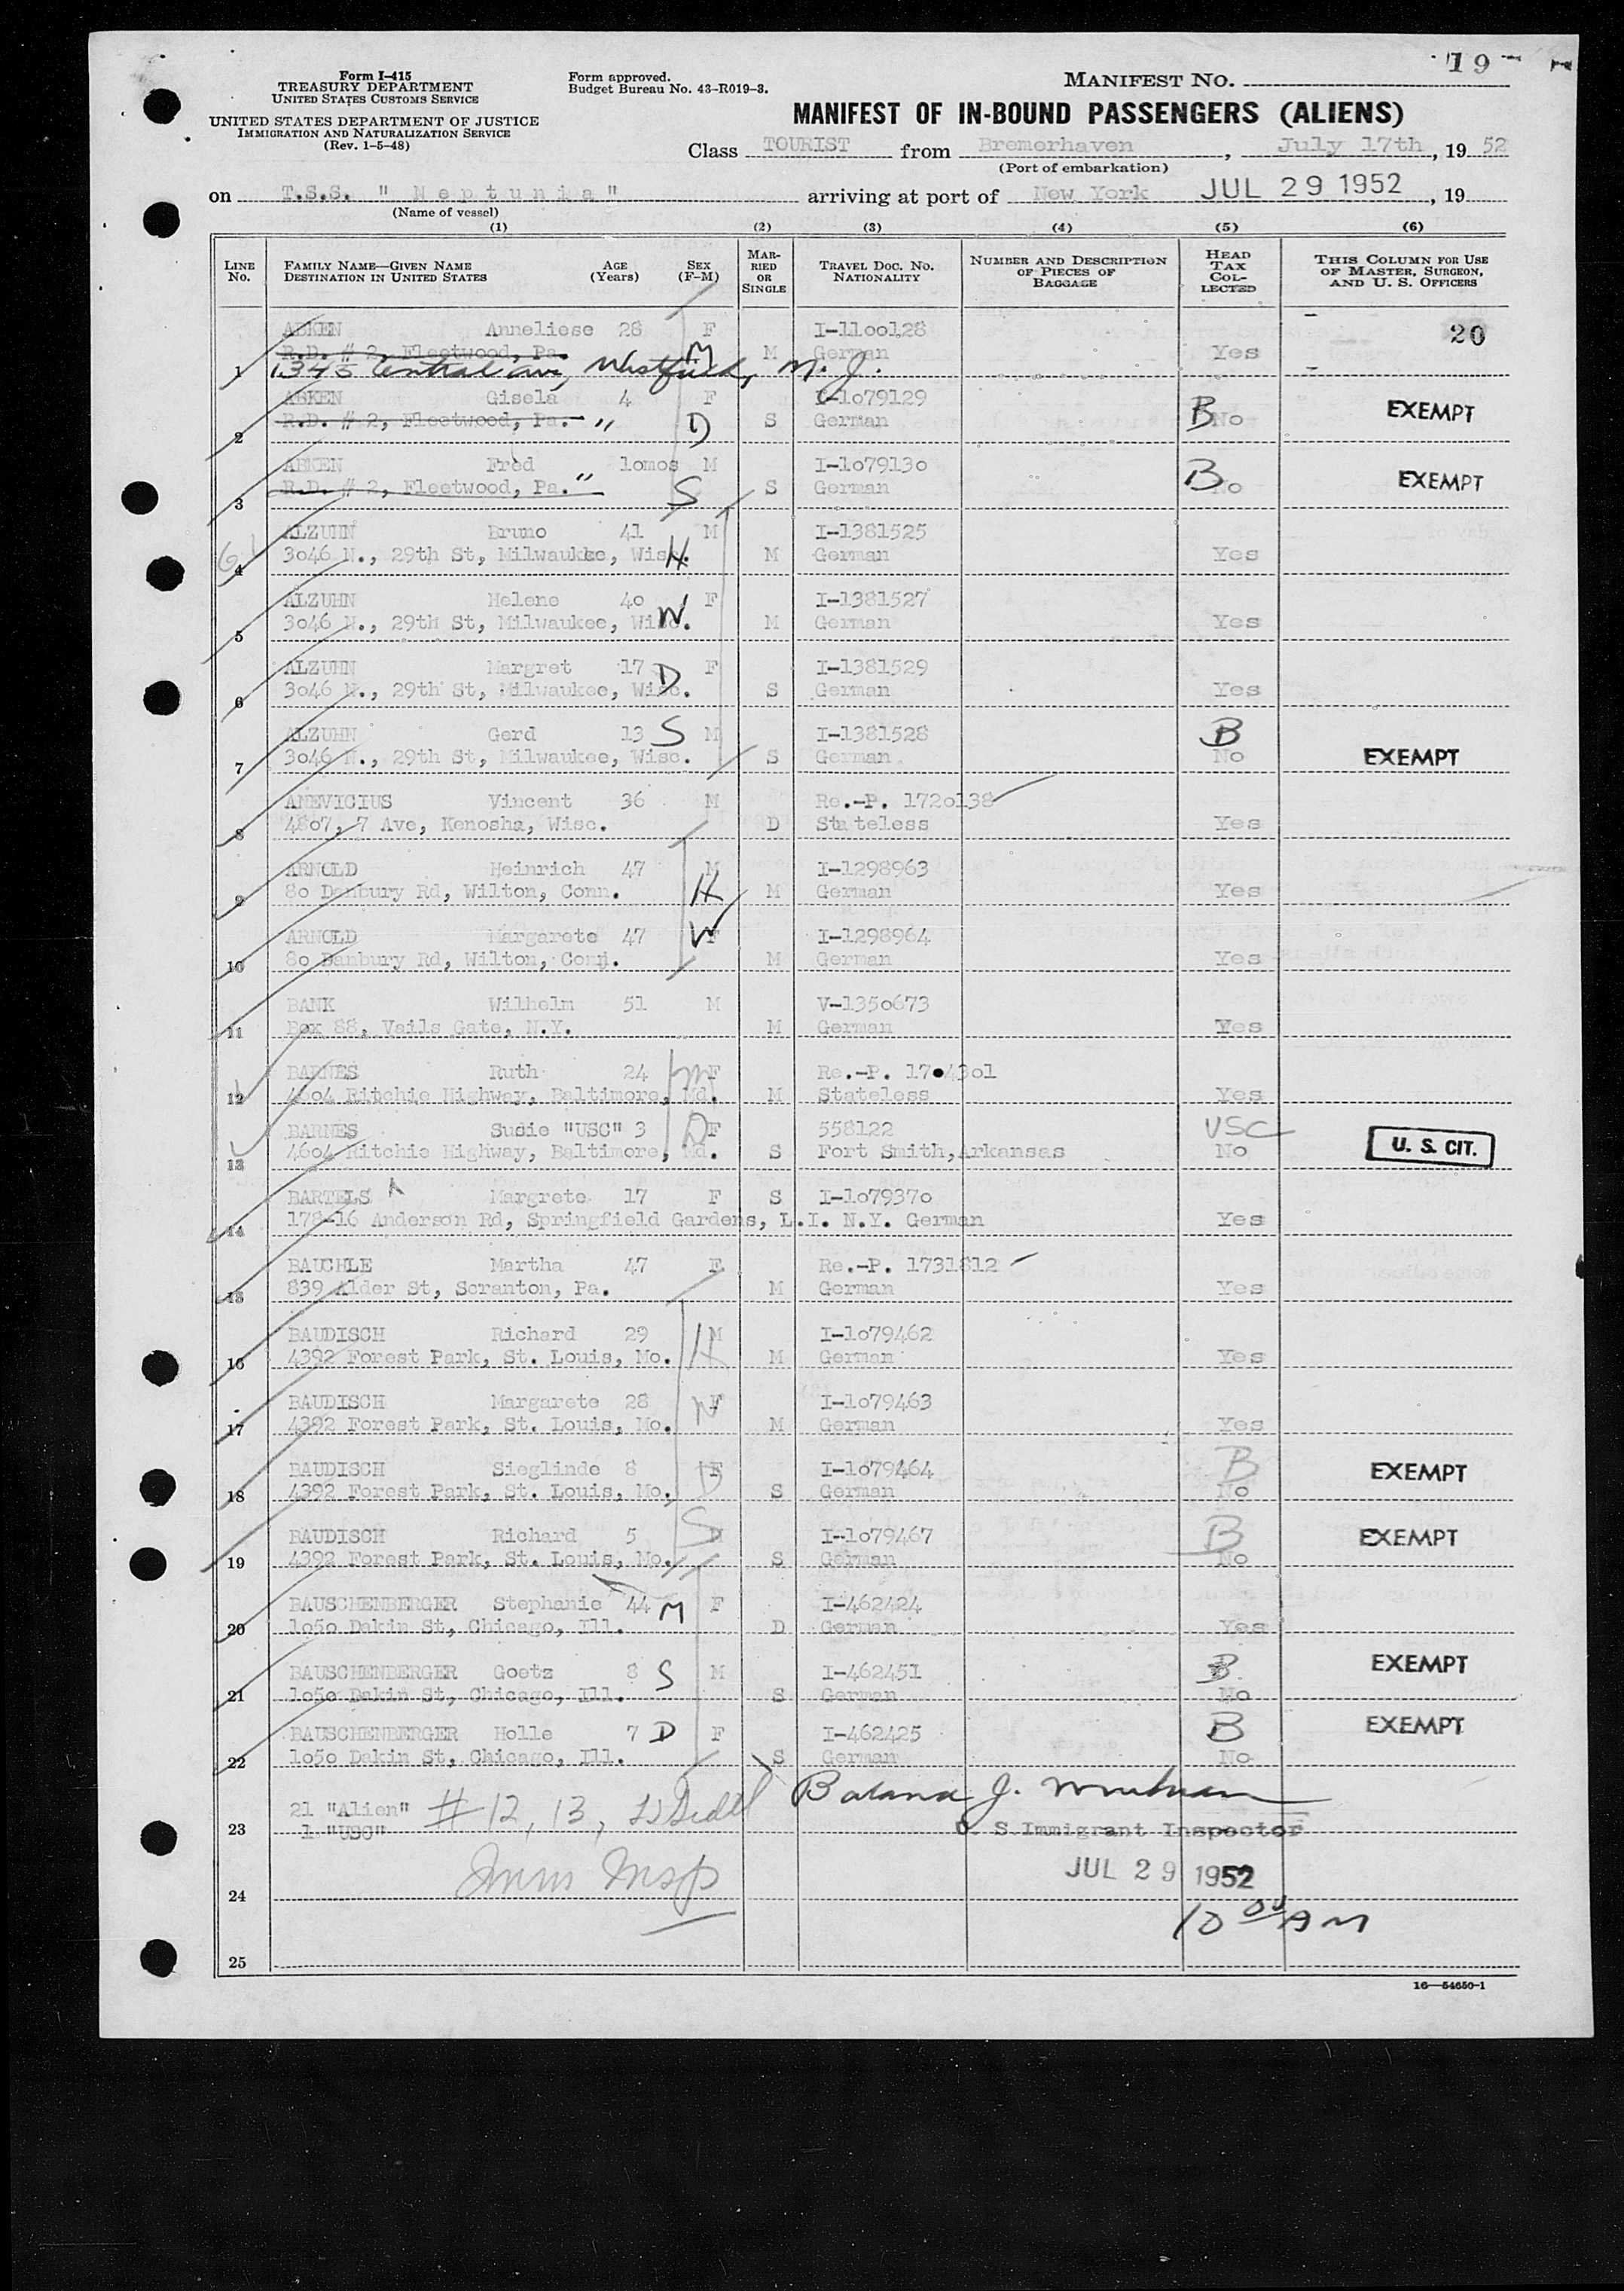 19
Form I-415
TREASURY DEPARTMENT
UNITED STATES CUSTOMS SERVICE
UNITED STATES DEPARTMENT OF JUSTICE
IMMIGRATION AND NATURALIZATION SERVICE
(Rev. 1-5-48)
Form approved.
Budget Bureau No. 43-R019-3.
MANIFEST NO.
MANIFEST OF IN-BOUND PASSENGERS (ALIENS)
Class TOURIST from Bremerhaven, July 17th, 19 52
(Port of embarkation)
on T.S.S. " N e p t u n i a " arriving at port of New York JUL 29 1952, 19
(Name of vessel)
(1) (2) (3) (4) (5) (6)
LINE No. FAMILY NAME—GIVEN NAME DESTINATION IN UNITED STATES AGE (Years) SEX (F-M) MARRIED OR SINGLE TRAVEL DOC. NO. NATIONALITY NUMBER AND DESCRIPTION OF PIECES OF BAGGAGE HEAD TAX COLLECTED THIS COLUMN FOR USE OF MASTER, SURGEON, AND U. S. OFFICERS
ABKEN Anneliese 28 F I-1100128 20
R.D. # 2, Fleetwood, Pa. M M German Yes
1 1345 Central Ave, Westfield, N. J.
ABKEN Gisela 4 F I-1079129
2 R.D. # 2, Fleetwood, Pa. " D S German B No EXEMPT
ABKEN Fred 10mos M I-1079130
3 R.D. # 2, Fleetwood, Pa. " S S German B No EXEMPT
ALZUHN Bruno 41 M I-1381525
4 3046 N., 29th St, Milwaukee, Wisc. H M German Yes
ALZUHN Helene 40 F I-1381527
5 3046 N., 29th St, Milwaukee, Wisc. W M German Yes
ALZUHN Margret 17 F I-1381529
6 3046 N., 29th St, Milwaukee, Wisc. D S German Yes
ALZUHN Gerd 13 S M I-1381528 B
7 3046 N., 29th St, Milwaukee, Wisc. S German No EXEMPT
ANEVICIUS Vincent 36 M Re.-P. 1720138
8 4807, 7 Ave, Kenosha, Wisc. D Stateless Yes
ARNOLD Heinrich 47 M I-1298963
9 80 Danbury Rd, Wilton, Conn. H M German Yes
ARNOLD Margarete 47 W F I-1298964
10 80 Danbury Rd, Wilton, Conn. M German Yes
BANK Wilhelm 51 M V-1350673
11 Box 88, Vails Gate, N.Y. M German Yes
BARNES Ruth 24 M F Re.-P. 17 4301
12 4604 Ritchie Highway, Baltimore, Md. M Stateless Yes
BARNES Susie "USC" 3 D F 558122 USC
13 4604 Ritchie Highway, Baltimore, Md. S Fort Smith, Arkansas No U. S. CIT.
BARTELS Margrete 17 F S I-1079370
14 178-16 Anderson Rd, Springfield Gardens, L.I. N.Y. German Yes
BAUCHLE Martha 47 F Re.-P. 1731812
15 839 Alder St, Scranton, Pa. M German Yes
BAUDISCH Richard 29 H M I-1079462
16 4392 Forest Park, St. Louis, Mo. M German Yes
BAUDISCH Margarete 28 W F I-1079463
17 4392 Forest Park, St. Louis, Mo. M German Yes
BAUDISCH Sieglinde 8 D F I-1079464 B EXEMPT
18 4392 Forest Park, St. Louis, Mo. S German No
BAUDISCH Richard 5 S M I-1079467 B EXEMPT
19 4392 Forest Park, St. Louis, Mo. S German No
BAUSCHENBERGER Stephanie 44 M F I-462424
20 1050 Dakin St, Chicago, Ill. D German Yes
BAUSCHENBERGER Goetz 8 S M I-462451 B EXEMPT
21 1050 Dakin St, Chicago, Ill. S German No
BAUSCHENBERGER Holle 7 D F I-462425 B EXEMPT
22 1050 Dakin St, Chicago, Ill. S German No
21 "Alien" # 12, 13, J.
23 1 "USC" U. S. Immigrant Inspector
Imm Insp JUL 29 1952
24
10 00 AM
25
16—54650-1